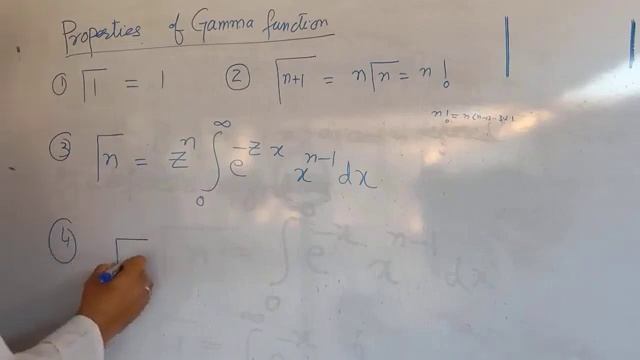 Properties of Gamma function
① Γ1 = 1 ② Γn+1 = nΓn = n!
③ Γn = z^n ∫_0^∞ e^{-zx} x^{n-1} dx
④ Γ